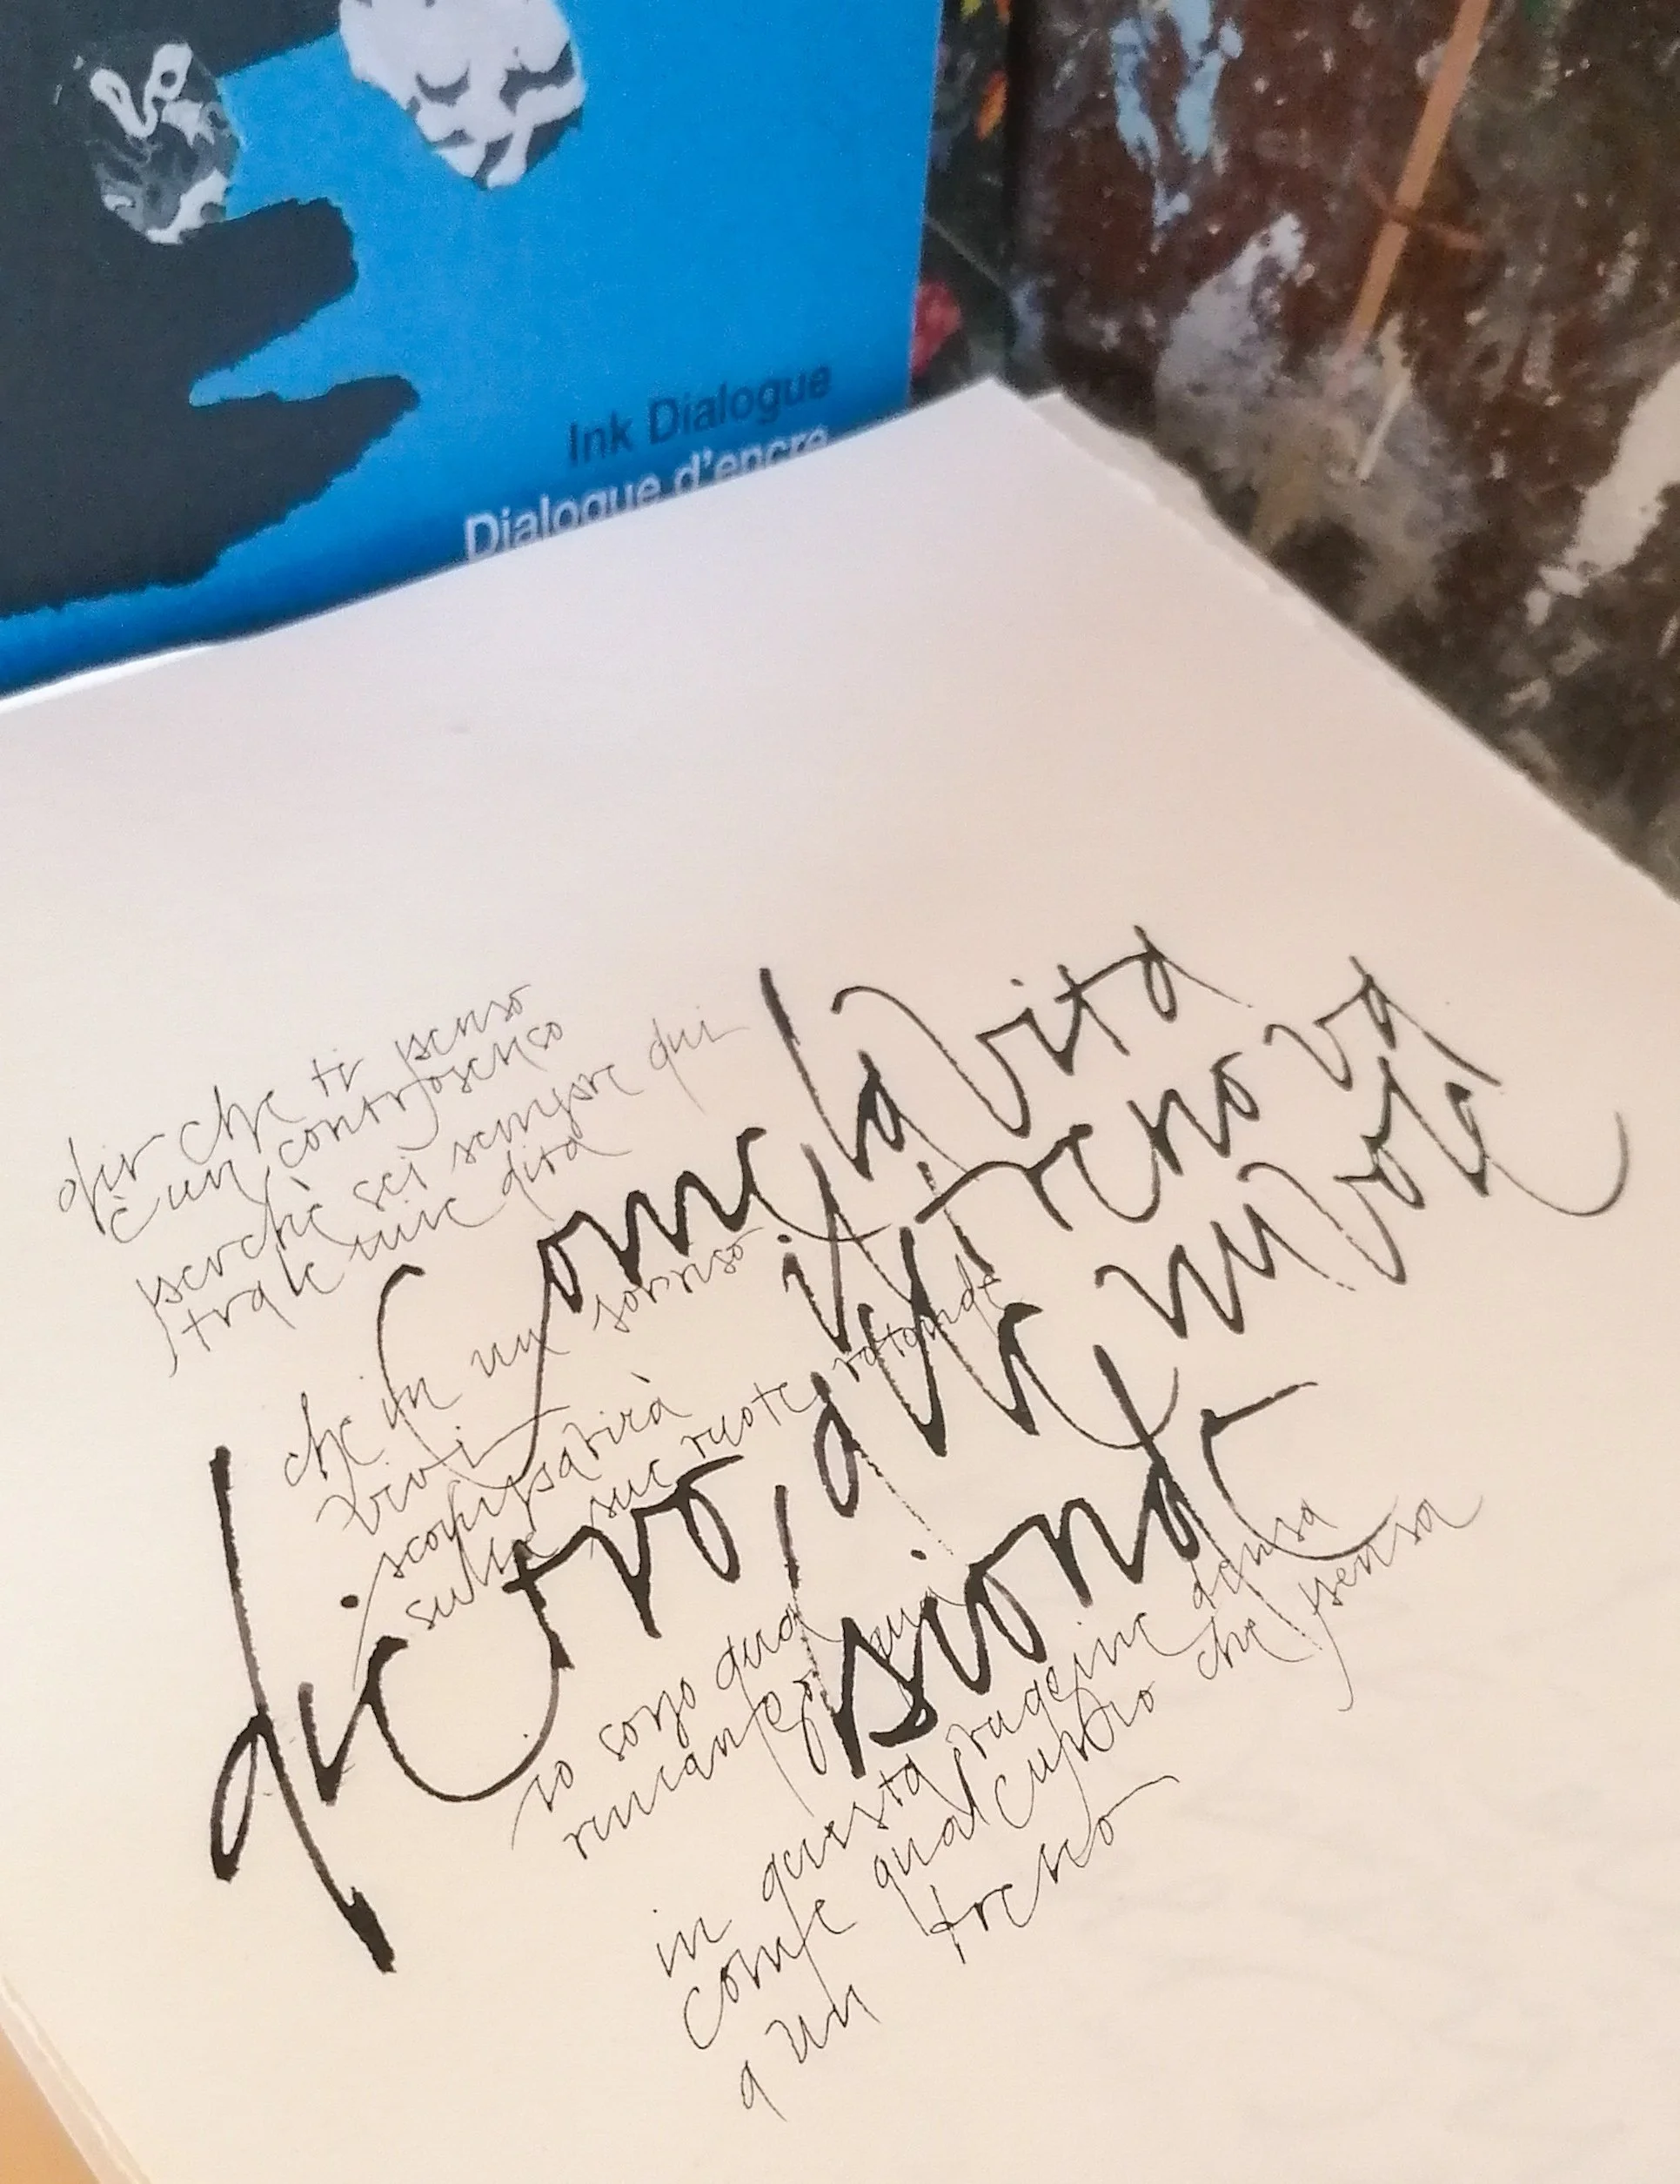 Ink Dialogue
Dialogue d'encre
dir che ti penso
è un controsenso
perchè sei sempre qui
tra le mie dita
Come la vita
il treno va
dietro, alla nuvola
bionda
che in un sorriso
scomparirà
sulle sue ruote rotonde
io sono qua
rimango qui
in questa densa
come che pensa
a un treno